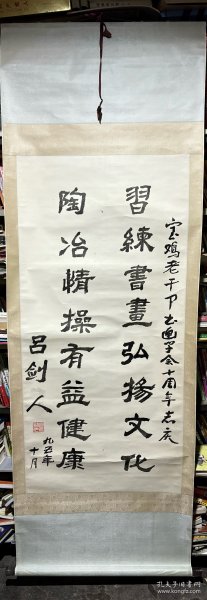 宝鸡老干部书画学会十周年志庆
習練書畫弘揚文化
陶冶情操有益健康
吕剑人
九五年
十月
孔夫子旧书网